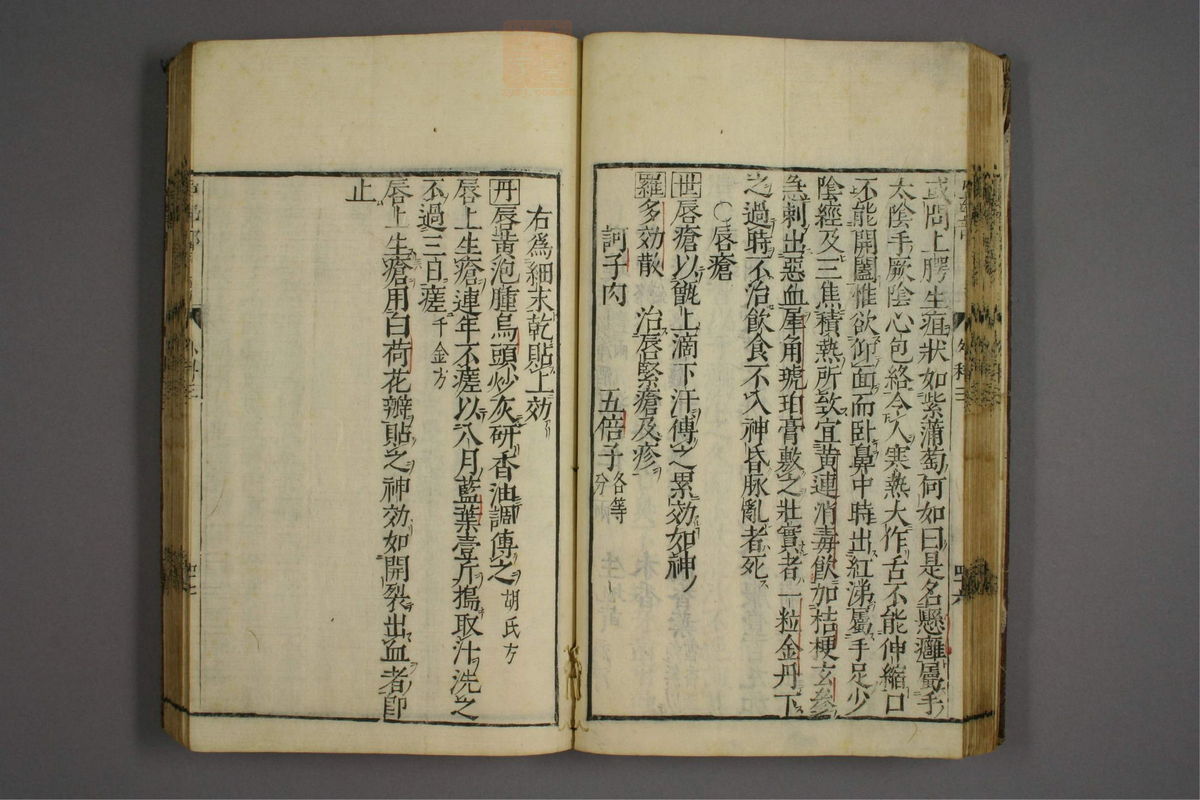 或問上腭生疽狀如紫蒲萄何如曰是名懸癰屬手
太陰手厥陰心包絡令人寒熱大作舌不能伸縮口
不能開闔惟欲仰面而臥鼻中時出紅涕屬手足少
陰經及三焦積熱所致宜黃連消毒飲加桔梗玄參
急刺出惡血犀角琥珀膏敷之壯實者一粒金丹下
之過時不治飲食不入神昏脉亂者死
〇唇瘡
世唇瘡以甑上滴下汗傅之累効如神
羅多効散 治唇緊瘡及疹
訶子肉 五倍子各等分
右爲細末乾貼上効
丹唇黃泡腫烏頭炒灰研香油調傅之胡氏方
唇上生瘡連年不瘥以八月藍葉壹斤搗取汁洗之
不過三日瘥千金方
唇上生瘡用白荷花瓣貼之神効如開裂出血者即
止